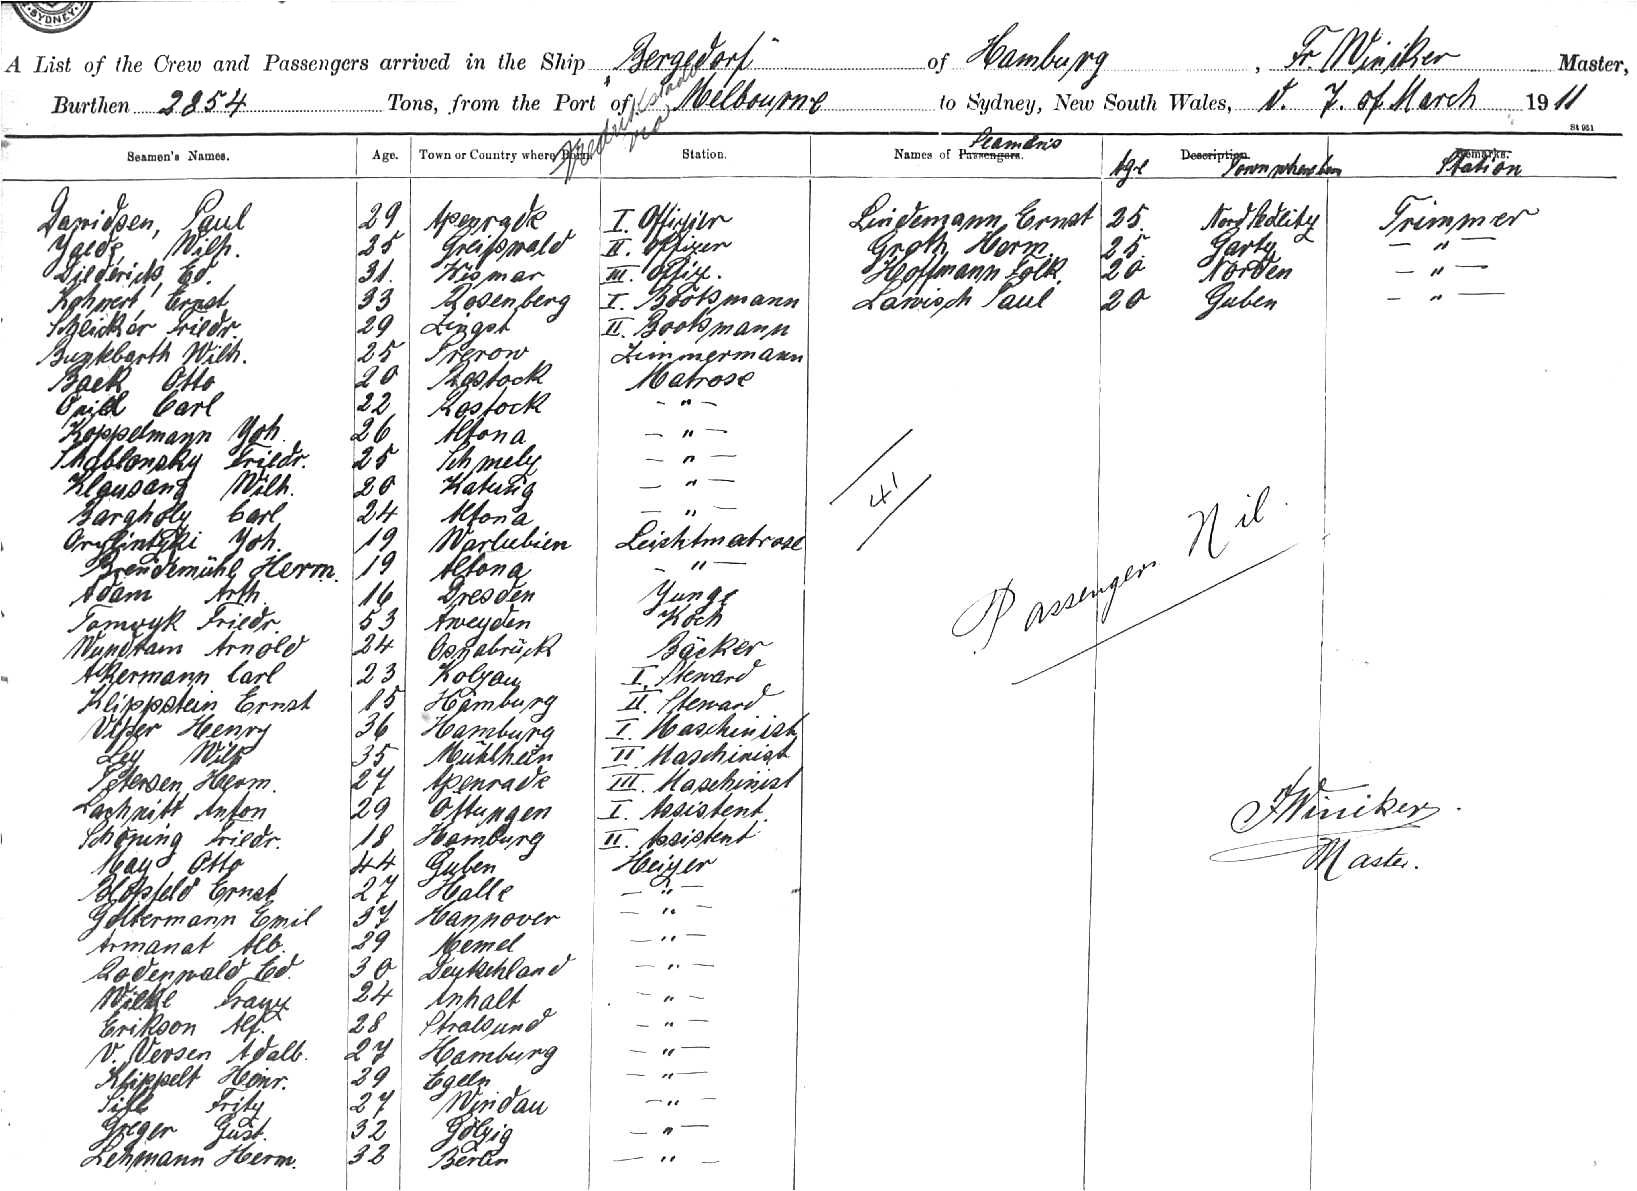 SYDNEY
A List of the Crew and Passengers arrived in the Ship "Bergedorf" of Hamburg, Fr. Winiker Master,
Burthen 2854 Tons, from the Port of Melbourne to Sydney, New South Wales, d. 7. of March 1911
via
St 951
Seamen's Names. Age. Town or Country where Born. Station. Names of Passengers. Seamens Age Description Town where born Remarks. Station
Davidsen, Paul 29 Apenrade I. Offizier Lindemann, Ernst 25 Trimmer
Wilh. 25 Greifswald II. Offizier Groth Herm. 25 Garty — " —
Diederich, Ed. 31. Wismar III. Offiz. Hoffmann Folk. 20 Norden — " —
Kohnert, Ernst 33 Rosenberg I. Bootsmann Lawisch Paul 20 Guben — " —
Friedr. 29 Zingst II. Bootsmann
Wilh. 25 Prerow Zimmermann
Baek Otto 20 Rostock Matrose
Carl 22 Rostock — " —
Koppelmann Joh. 26 Altona — " —
Schablonsky Friedr. 25 Schmelz — " —
Klausang Wilh. 20 — " —
Bargholz Carl 24 Altona — " —
Joh. 19 Warlubien Leichtmatrose
Brendemühl Herm. 19 Altona — " —
Adam Arth. 16 Dresden Junge
Friedr. 53 Aweyden Koch
Wundram Arnold 24 Osnabrück Bäcker
Akermann Carl 23 Kolzau I. Steward
Klippstein Ernst 15 Hamburg II. Steward
Henry 36 Hamburg I. Maschinist
Ley Wilh 35 Mühlheim II. Maschinist
Petersen, Herm. 27 Apenrade III. Maschinist
Lachnitt Anton 29 Oftungen I. Assistent.
Schöning Friedr. 18 Hamburg II. Assistent
May Otto 44 Guben Heizer
Blossfeld Ernst 27 Halle — " —
Goltermann Emil 37 Hannover — " —
Armanat Alb. 29 Memel — " —
Rodenwald Ed. 30 Deutschland — " —
Wilke Franz 24 Anhalt — " —
Erikson Alf. 28 Stralsund — " —
V. Versen Adalb. 27 Hamburg — " —
Klippelt Heinr. 29 Egeln — " —
Fritz 27 Windau — " —
Greger Gust. 32 — " —
Lehmann Herm. 32 Berlin — " —
41
Passengers Nil.
F Winiker.
Master.